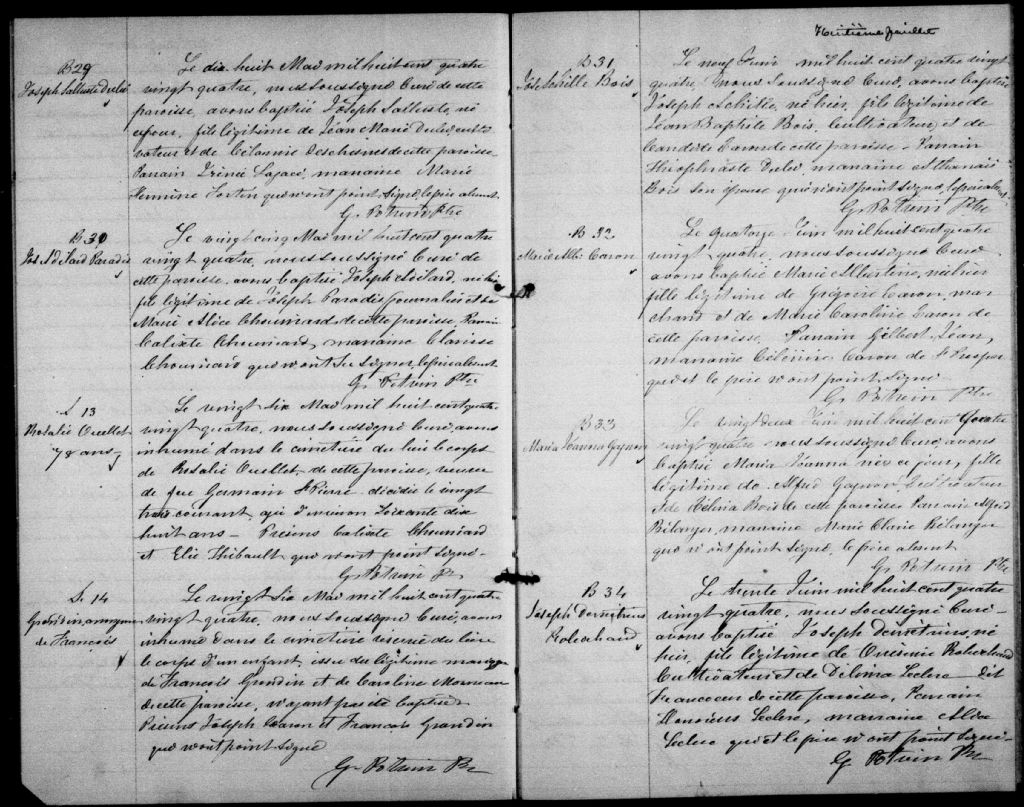 B 29
Joseph Salluste Dubé
Le dix huit Mai mil huit cent quatre
vingt quatre, nous soussigné Curé de cette
paroisse, avons baptisé Joseph Salluste, né
ce jour, fils légitime de Jean Marie Dubé, culti
vateur et de Célannie Deschesnes de cette paroisse.
Parrain Irénée marraine Marie
Hermine Fortin qui n'ont point signé, le père absent.
G. Potvin Ptre
B 30
Jos. Adélard Paradis
Le vingt cinq Mai mil huit cent quatre
vingt quatre, nous soussigné Curé de
cette paroisse, avons baptisé Joseph Adélard, né hier
fils légitime de Joseph Paradis Journalier et de
Marie Alice Chouinard de cette paroisse, Parrain
Calixte Chouinard, marraine Clarisse
Chouinard qui n'ont su signer, le père absent.
G. Potvin Ptre
S. 13
Rosalie Ouellet
78 ans
Le vingt six Mai mil huit cent quatre
vingt quatre, nous soussigné Curé, avons
inhumé dans le cimetière du lieu le corps
de Rosalie Ouellet, de cette paroisse, veuve
de feu Germain St Pierre décédée le vingt
trois courant, agée d'environ soixante dix
huit ans. Présens Calixte Chouinard
et Elie Thibault qui n'ont point signé.
G. Potvin Ptr
S. 14
Grondin anonyme
de François
Le vingt six Mai mil huit cent quatre
vingt quatre, nous soussigné Curé, avons
inhumé dans le cimetière du lieu
le corps d'un enfant, issu du légitime mariage
de François Grondin et de Caroline Morneau
de cette paroisse, n'ayant pas été baptisé
Présens Joseph Caron et François Grondin
qui n'ont point signé
G. Potvin Ptre
Huitième feuillet
B 31
Jos. Achille Bois
Le neuf Juin mil huit cent quatre vingt
quatre, nous soussigné Curé, avons baptisé
Joseph Achille, né hier, fils légitime de
Jean Baptiste Bois, Cultivateur, et de
Candide Caron de cette paroisse. Parrain
Théophraste Dubé, marraine Athanaïs
Bois son épouse qui n'ont point signé, le père absent.
G. Potvin Ptre
B 32
Marie Alb. Caron
Le quatorze Juin mil huit cent quatre
vingt quatre, nous soussigné Curé
avons baptisé Marie Albertine, née hier
fille légitime de Grégoire Caron, mar
chand et de Marie Caroline Caron de
cette paroisse. Parrain Gilbert Jean,
marraine Célénire Caron de St Prosper
qui et le père n'ont point signé
G. Potvin Ptre
B 33
Maria Joanna Gagnon
Le vingt deux Juin mil huit cent quatre
vingt quatre nous soussigné Curé, avons
baptisé Maria Joanna née ce jour, fille
légitime de Alfred Gagnon Cultivateur
et de Zélina Bois de cette paroisse Parrain Alfred
Bélanger, marraine Marie Claire Bélanger
qui n'ont point signé, le père absent
G. Potvin Ptre
B 34
Joseph Demétrius
Robichaud
Le trente Juin mil huit cent quatre
vingt quatre, nous soussigné Curé
avons baptisé Joseph Demétrius, né
hier, fils légitime de Onésime Robichaud
Cultivateur et de Délima Leclerc dit
Francoeur de cette paroisse, Parrain
Leclerc, marraine
Leclerc qui et le père n'ont point signé.
G. Potvin Ptre